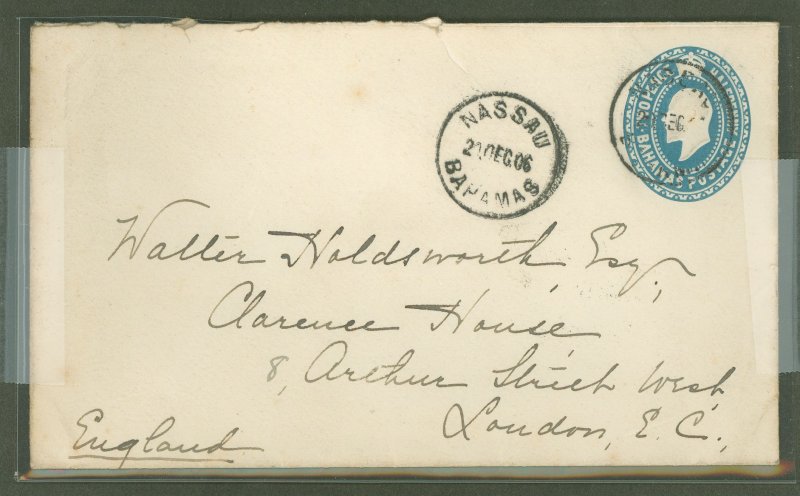 NASSAU
BAHAMAS
BAHAMAS POSTAGE
Walter Holdsworth, Esq.,
Clarence House,
8, Arthur Street West,
London, E. C.,
England